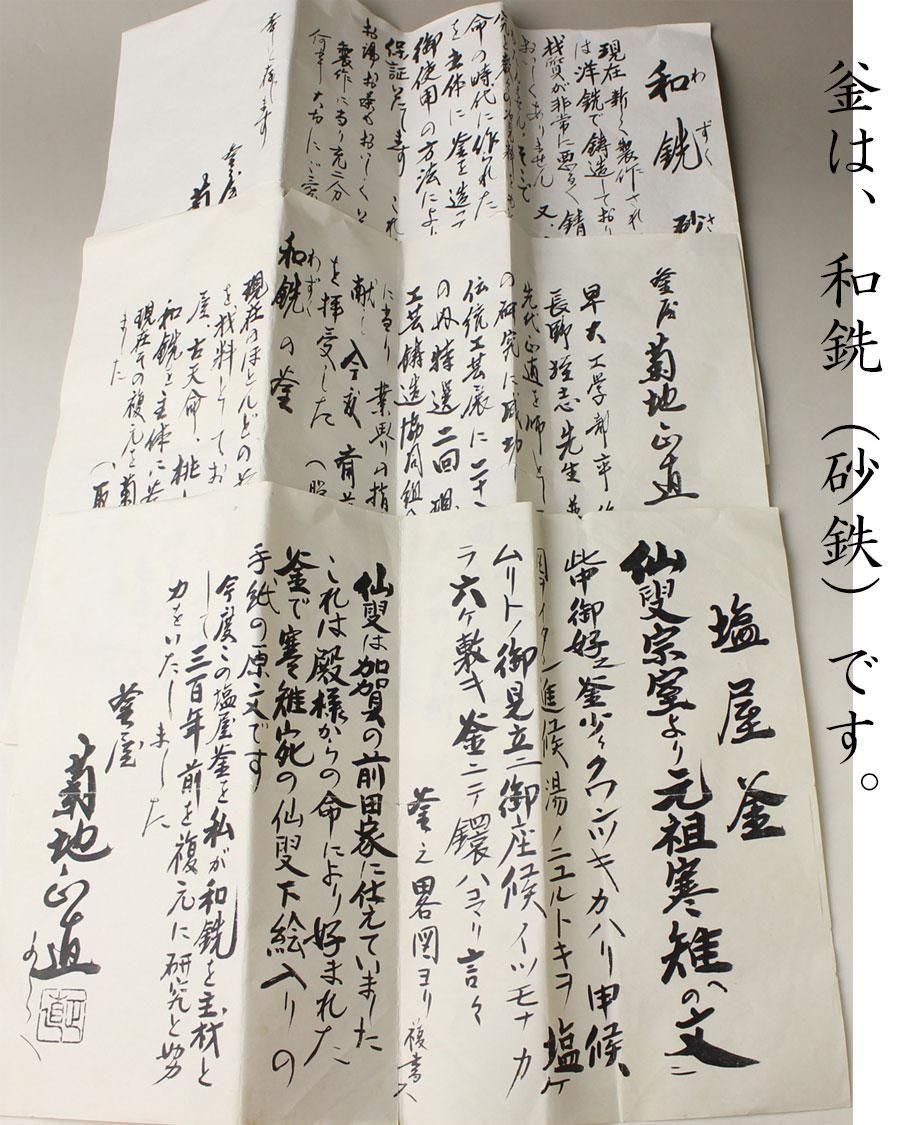 釜は、和銑（砂鉄）です。
和銑
わずく
砂
さ
現在新しく製作され
は洋銑で鋳造しており
材質が非常に悪るく錆
又、
おいしくありません
そこで
命の時代に作られた
を主体に釜を造って
御使用の方法によ
保証いたします
これ
お湯お茶もおいしく
製作に当り充二分
何卒
幸と存じます
釜屋
菊
釜屋
菊地正直
早大工学部卒
長野垤志先生
先代正直を師として
の研究に成功
伝統工芸展に二十
の内特選二回
現
工芸鋳造協同組合
に当り
業界の指
献し今度
を拝受した
和銑の釜
わずく
現在のほとんどの
を材料としてお
屋、古天命、桃
和銑を主体に
現在その複元を菊
ました
塩屋釜
仙叟宗室より元祖寒雉への文ニ
此中御好之釜少々クワンツキカハリ申候
進候湯ノニエルトキヲ塩ケ
ムリトノ御見立ニ御座候イツモナカ
ラ六ケ敷キ釜ニテ鐶ハコマリ言々
釜之畧図ヨリ
仙叟は加賀の前田家に仕えていました
これは殿様からの命により好まれた
釜で寒雉宛の仙叟下絵入りの
手紙の原文です
今度この塩屋釜を私が和銑を主材と
して三百年前を複元に研究と努
力をいたしました
釜屋
菊地正直
正直